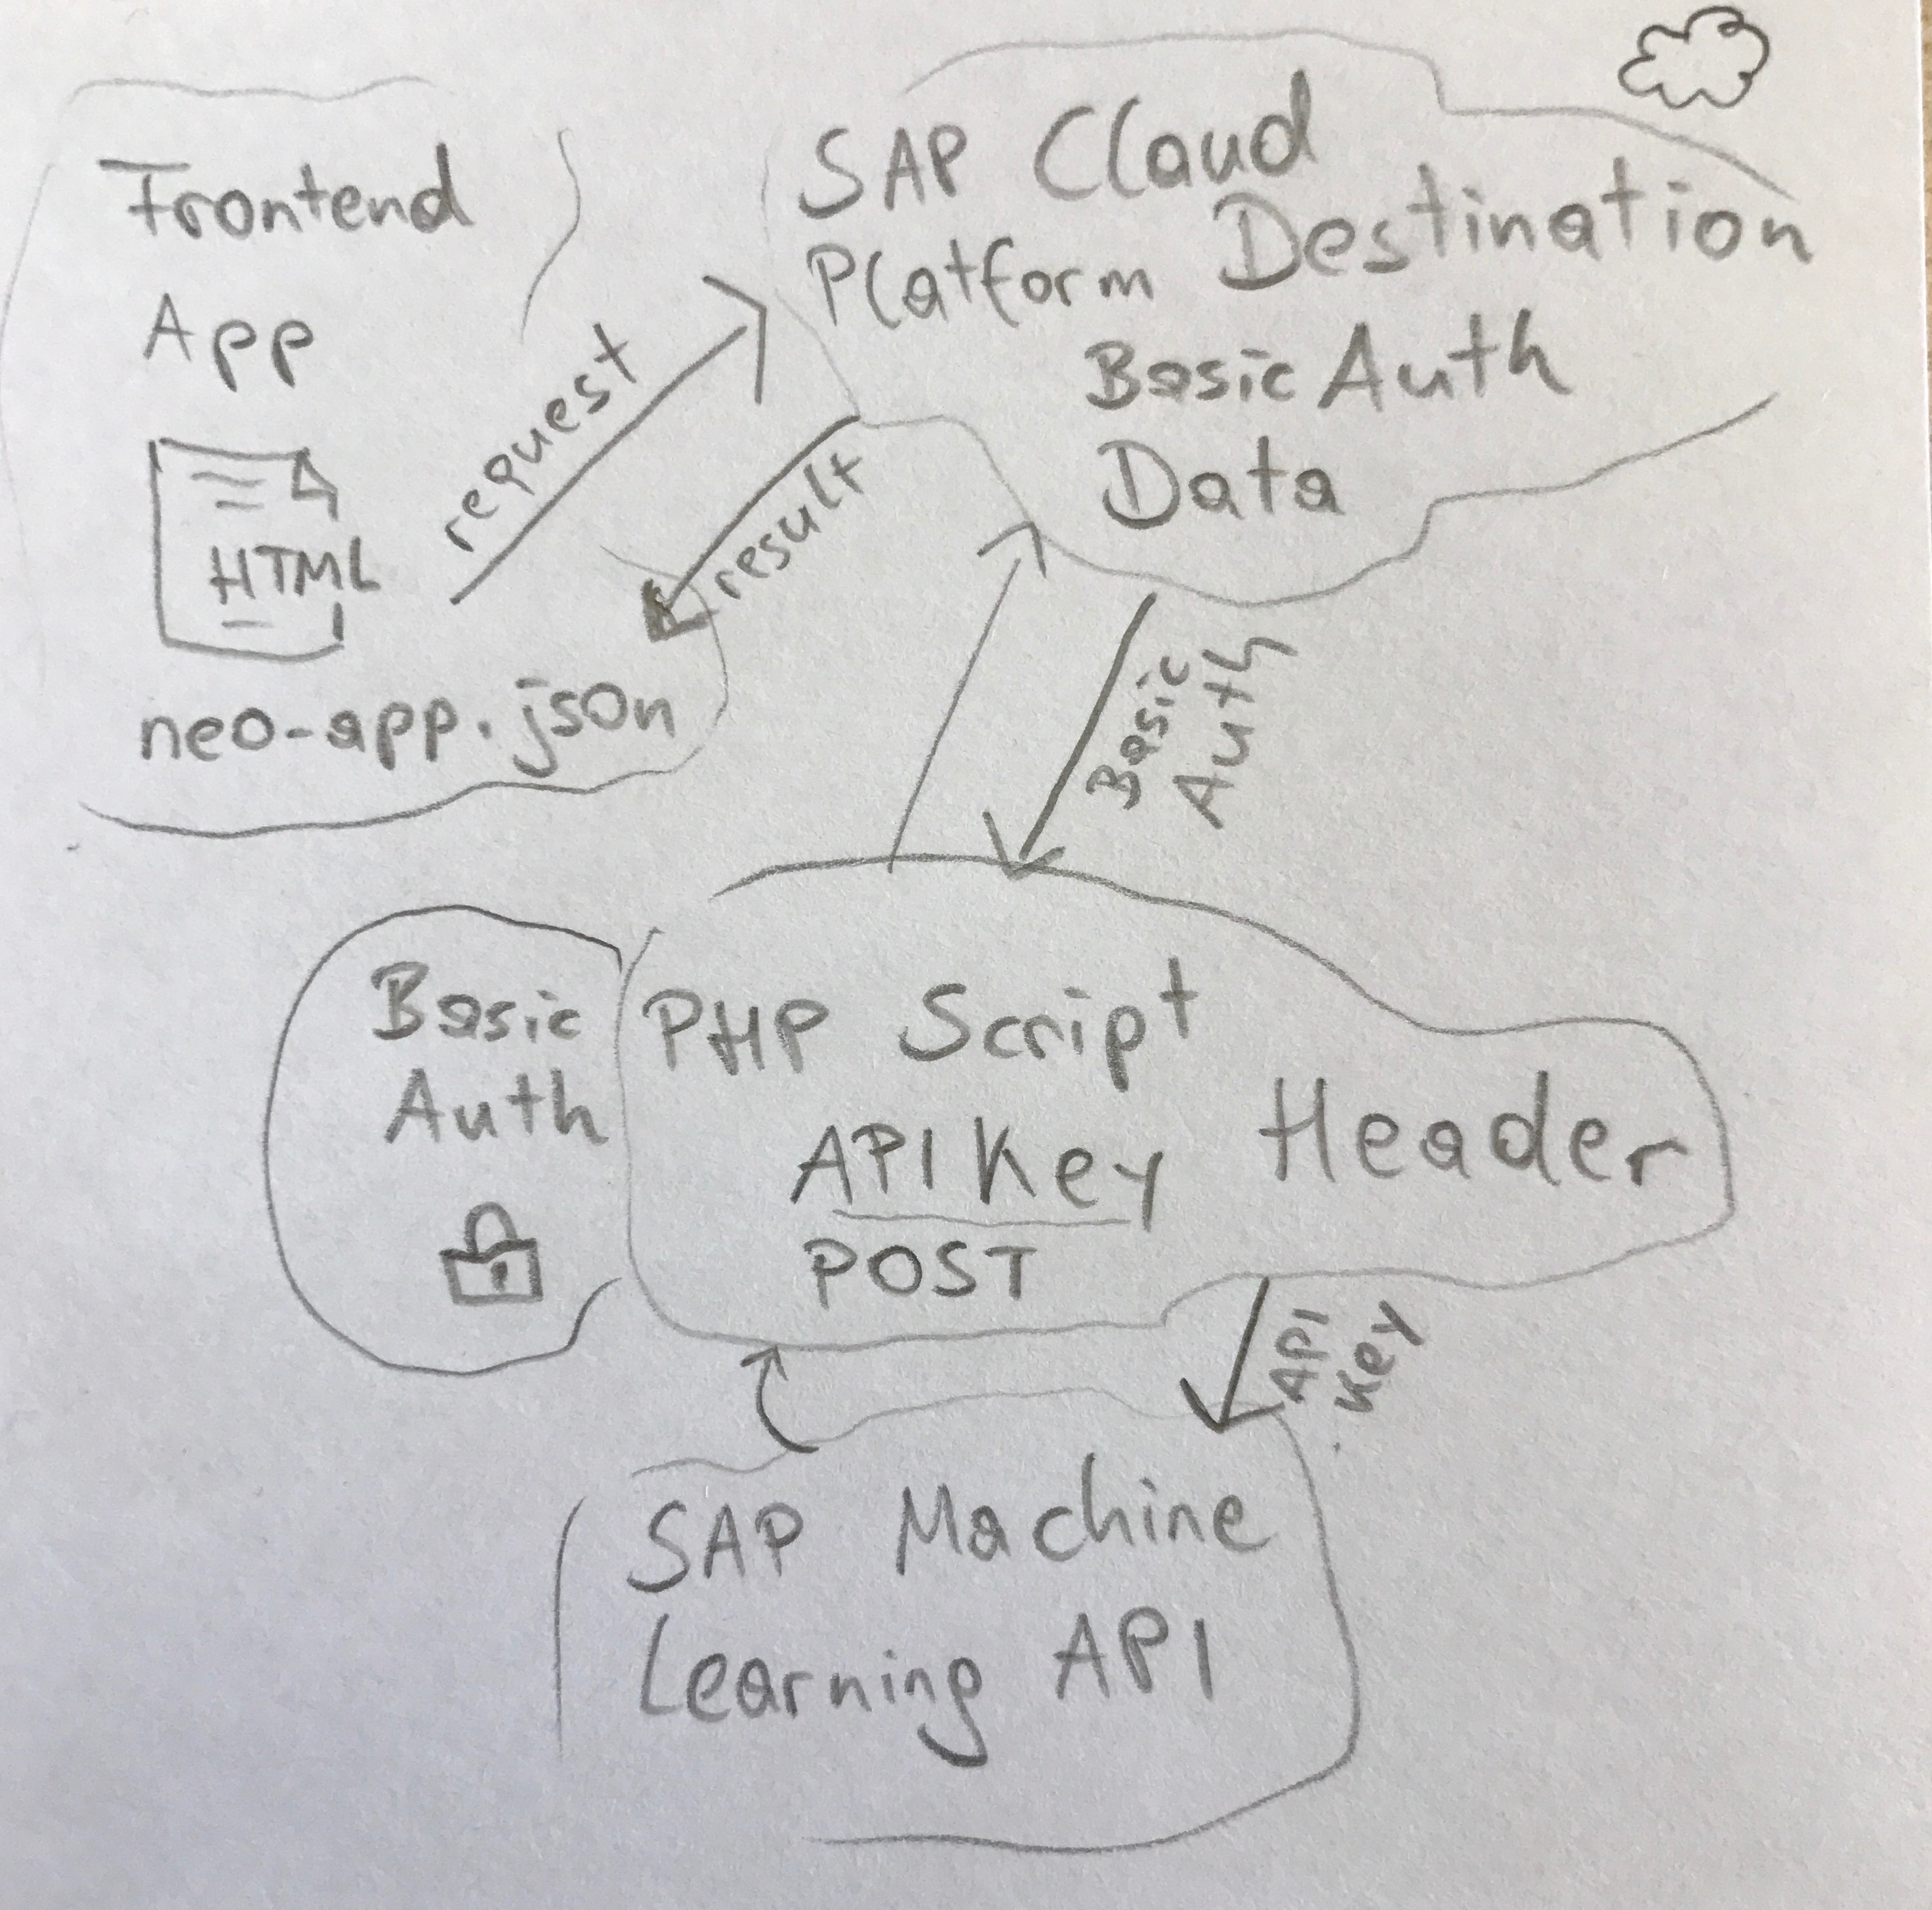 Frontend
App
HTML
neo-app.json
request
result
SAP Cloud
Platform Destination
Basic Auth
Data
Basic
Auth
Basic
Auth
PHP Script
API Key Header
POST
API
Key
SAP Machine
Learning API